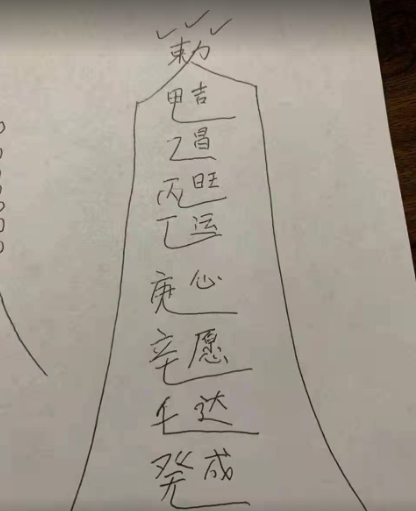 敕
甲吉
乙昌
丙旺
丁运
庚心
辛愿
壬达
癸成